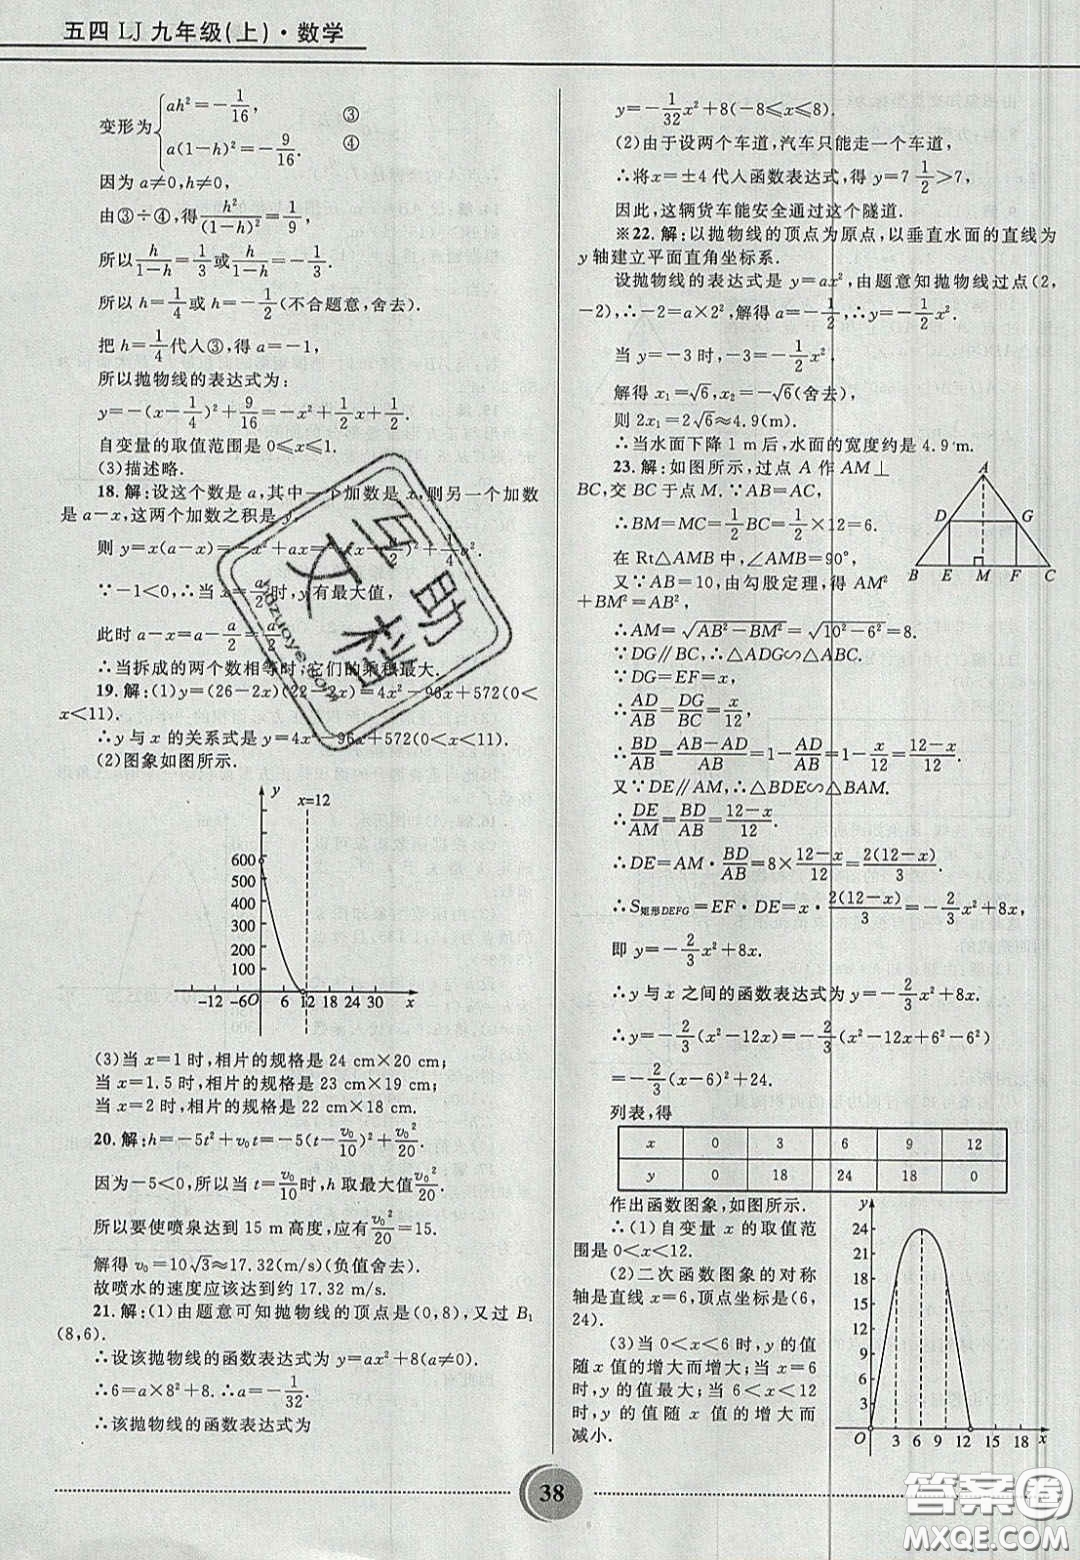 五四 LJ 九年级(上)·数学
变形为{ah²=-1/16, ③
a(1-h)²=-9/16. ④
因为 a≠0,h≠0,
由③÷④,得h²/(1-h)²=1/9,
所以h/(1-h)=1/3或h/(1-h)=-1/3.
所以 h=1/4或 h=-1/2(不合题意,舍去).
把 h=1/4代人③,得 a=-1,
所以抛物线的表达式为:
y=-(x-1/4)²+9/16=-x²+1/2x+1/2.
自变量的取值范围是 0≤x≤1.
(3)描述略.
18.解:设这个数是 a,其中一个加数是 x,则另一个加数
是 a-x,这两个加数之积是 y,
则 y=x(a-x)=-x²+ax=-(x-a/2)²+1/4a².
∵-1<0,∴当 x=a/2时,y有最大值,
此时 a-x=a-a/2=a/2.
∴当拆成的两个数相等时,它们的乘积最大.
19.解:(1)y=(26-2x)(22-2x)=4x²-96x+572(0<
x<11).
∴y 与 x 的关系式是 y=4x²-96x+572(0<x<11).
(2)图象如图所示.
y
x=12
600
500
400
300
200
100
-12 -6 O 6 12 18 24 30 x
(3)当 x=1 时,相片的规格是 24 cm×20 cm;
当 x=1.5 时,相片的规格是 23 cm×19 cm;
当 x=2 时,相片的规格是 22 cm×18 cm.
20.解:h=-5t²+v₀t=-5(t-v₀/10)²+v₀²/20.
因为-5<0,所以当 t=v₀/10时,h 取最大值v₀²/20.
所以要使喷泉达到 15 m 高度,应有v₀²/20=15.
解得 v₀=10√3≈17.32(m/s)(负值舍去).
故喷水的速度应该达到约 17.32 m/s.
21.解:(1)由题意可知抛物线的顶点是(0,8),又过 B₁
(8,6).
∴设该抛物线的函数表达式为 y=ax²+8(a≠0).
∴6=a×8²+8.∴a=-1/32.
∴该抛物线的函数表达式为
y=-1/32x²+8(-8≤x≤8).
(2)由于设两个车道,汽车只能走一个车道,
∴将 x=±4 代人函数表达式,得 y=7 1/2>7,
因此,这辆货车能安全通过这个隧道.
※22.解:以抛物线的顶点为原点,以垂直水面的直线为
y 轴建立平面直角坐标系.
设抛物线的表达式是 y=ax²,由题意知抛物线过点(2,
-2),∴-2=a×2²,解得 a=-1/2,∴y=-1/2x².
当 y=-3 时,-3=-1/2x².
解得 x₁=√6,x₂=-√6(舍去),
则 2x₁=2√6≈4.9(m).
∴当水面下降 1 m 后,水面的宽度约是 4.9 m.
23.解:如图所示,过点 A 作 AM⊥
BC,交 BC 于点 M.∵AB=AC,
∴BM=MC=1/2BC=1/2×12=6.
在 Rt△AMB 中,∠AMB=90°,
又∵AB=10,由勾股定理,得 AM²
+BM²=AB²,
∴AM=√(AB²-BM²)=√(10²-6²)=8.
∵DG∥BC,∴△ADG∽△ABC.
∵DG=EF=x,
∴AD/AB=DG/BC=x/12,
∴BD/AB=(AB-AD)/AB=1-AD/AB=1-x/12=(12-x)/12.
又∵DE∥AM,∴△BDE∽△BAM.
∴DE/AM=BD/AB=(12-x)/12.
∴DE=AM·BD/AB=8×(12-x)/12=2(12-x)/3.
∴S矩形DEFG=EF·DE=x·2(12-x)/3=-2/3x²+8x,
即 y=-2/3x²+8x.
∴y 与 x 之间的函数表达式为 y=-2/3x²+8x.
∴y=-2/3(x²-12x)=-2/3(x²-12x+6²-6²)
=-2/3(x-6)²+24.
列表,得
x 0 3 6 9 12
y 0 18 24 18 0
作出函数图象,如图所示.
∴(1)自变量 x 的取值范
围是 0<x<12.
(2)二次函数图象的对称
轴是直线 x=6,顶点坐标是(6,
24).
(3)当 0<x<6 时,y 的值
随 x 值的增大而增大;当 x=6
时,y 的值最大;当 6<x<12
时,y 的值随 x 值的增大而
减小.
A
D G
B E M F C
y
24
21
18
15
12
9
6
3
O 3 6 9 12 15 18 x
38
互助文科
yuzuoye.com
答案圈
MXQE.COM